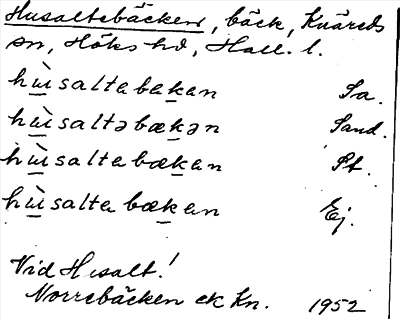 Husaltebäcken, bäck, Knäreds
sn, Höks hd, Hall. l.
hùsaltabakan Sa.
hùsaltəbækən Sand.
hùsaltabækan St.
hùsaltabækan Ej.
Vid Husalt!
Norrebäcken ek Kn. 1952